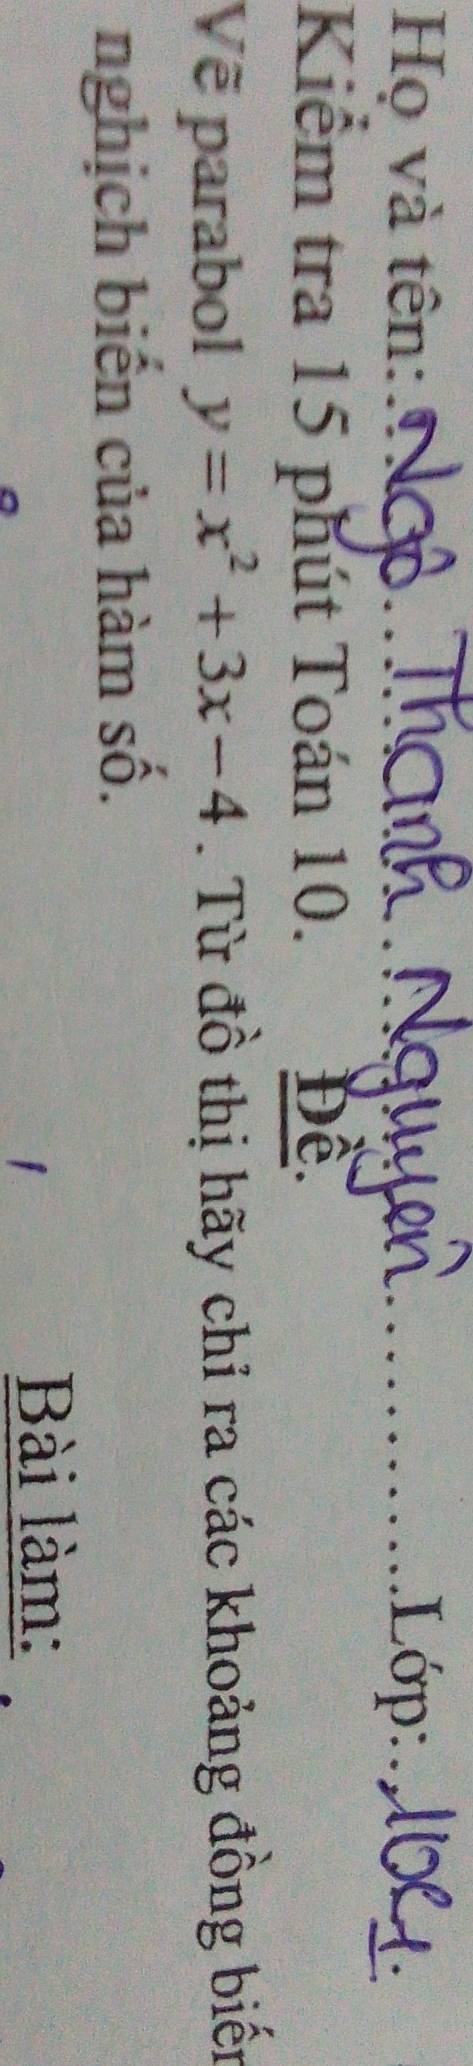 Họ và tên:....Ngô....Thanh....Nguyên............Lớp:..10C1.
Kiểm tra 15 phút Toán 10. Đề.
Vẽ parabol y = x² + 3x − 4. Từ đồ thị hãy chỉ ra các khoảng đồng biến
nghịch biến của hàm số.
Bài làm: